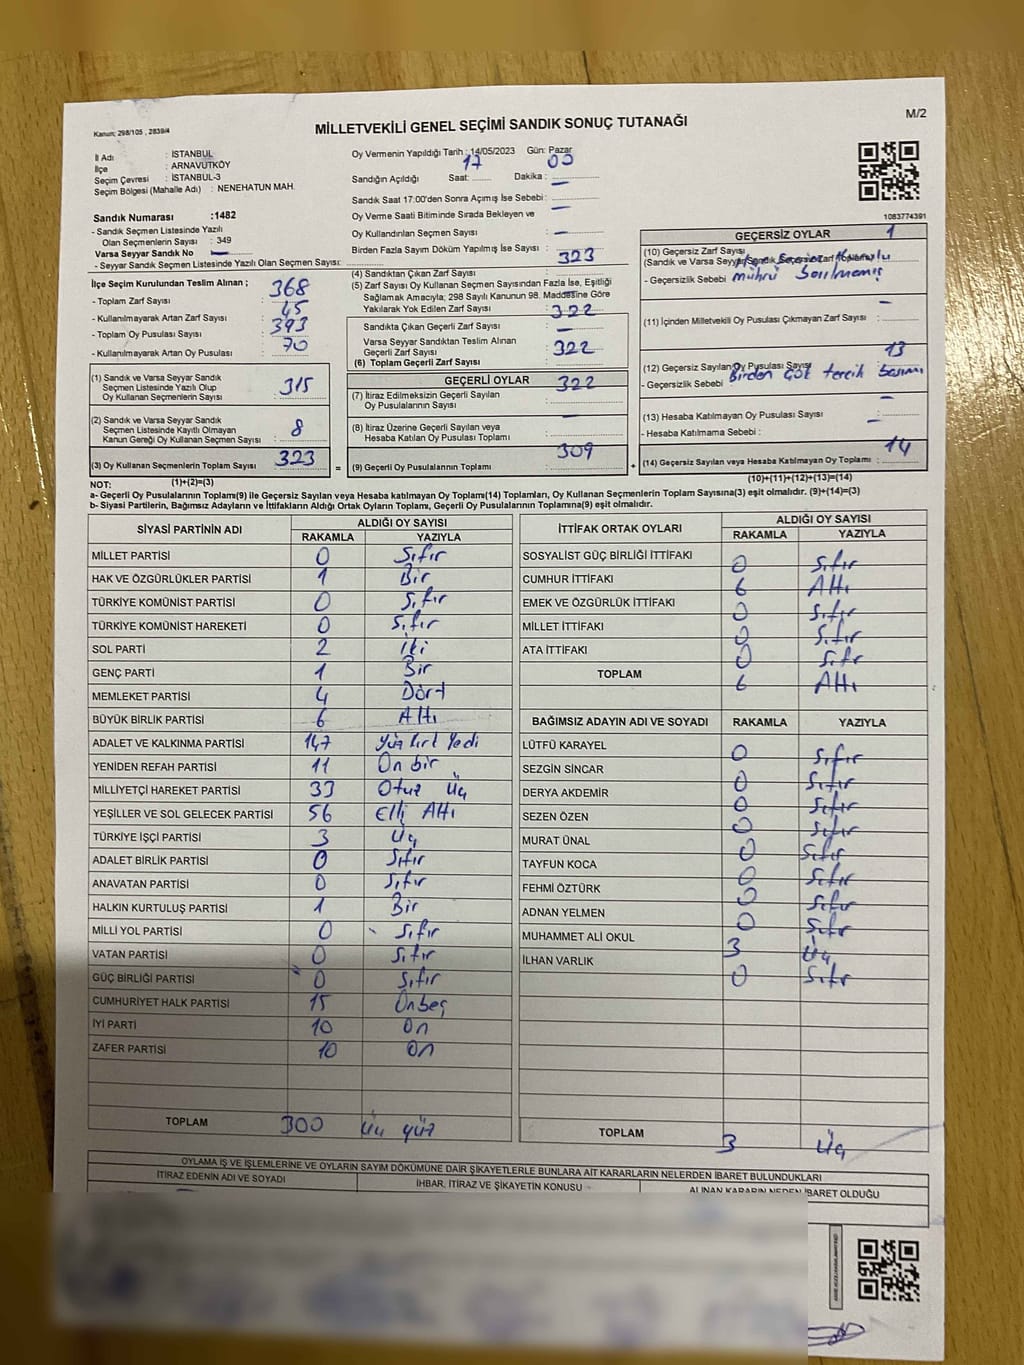 Kanun; 298/105 , 2839/4
MİLLETVEKİLİ GENEL SEÇİMİ SANDIK SONUÇ TUTANAĞI
M/2
İl Adı : İSTANBUL
İlçe : ARNAVUTKÖY
Seçim Çevresi : İSTANBUL-3
Seçim Bölgesi (Mahalle Adı) : NENEHATUN MAH.
Sandık Numarası :1482
- Sandık Seçmen Listesinde Yazılı
Olan Seçmenlerin Sayısı : 349
Varsa Seyyar Sandık No
- Seyyar Sandık Seçmen Listesinde Yazılı Olan Seçmen Sayısı:
Oy Vermenin Yapıldığı Tarih : 14/05/2023 Gün: Pazar
Sandığın Açıldığı Saat: 17 Dakika : 00
Sandık Saat 17:00'den Sonra Açımış İse Sebebi : —
Oy Verme Saati Bitiminde Sırada Bekleyen ve
Oy Kullandırılan Seçmen Sayısı : —
Birden Fazla Sayım Döküm Yapılmış İse Sayısı : —
1083774391
İlçe Seçim Kurulundan Teslim Alınan ;
- Toplam Zarf Sayısı : 368
- Kullanılmayarak Artan Zarf Sayısı : 45
- Toplam Oy Pusulası Sayısı : 393
- Kullanılmayarak Artan Oy Pusulası : 70
(1) Sandık ve Varsa Seyyar Sandık
Seçmen Listesinde Yazılı Olup
Oy Kullanan Seçmenlerin Sayısı : 315
(2) Sandık ve Varsa Seyyar Sandık
Seçmen Listesinde Kayıtlı Olmayan
Kanun Gereği Oy Kullanan Seçmen Sayısı : 8
(3) Oy Kullanan Seçmenlerin Toplam Sayısı : 323
(1)+(2)=(3)
(4) Sandıktan Çıkan Zarf Sayısı : 323
(5) Zarf Sayısı Oy Kullanan Seçmen Sayısından Fazla İse, Eşitliği
Sağlamak Amacıyla; 298 Sayılı Kanunun 98. Maddesine Göre
Yakılarak Yok Edilen Zarf Sayısı :
Sandıkta Çıkan Geçerli Zarf Sayısı : 322
Varsa Seyyar Sandıktan Teslim Alınan
Geçerli Zarf Sayısı : —
(6) Toplam Geçerli Zarf Sayısı : 322
GEÇERLİ OYLAR
(7) İtiraz Edilmeksizin Geçerli Sayılan
Oy Pusulalarının Sayısı : 322
(8) İtiraz Üzerine Geçerli Sayılan veya
Hesaba Katılan Oy Pusulası Toplamı : —
= (9) Geçerli Oy Pusulalarının Toplamı : 309
GEÇERSİZ OYLAR
(10) Geçersiz Zarf Sayısı 1
(Sandık ve Varsa Seyyar Sandık Geçersiz Zarf Toplamı)
- Geçersizlik Sebebi : mührü basılmamış
(11) İçinden Milletvekili Oy Pusulası Çıkmayan Zarf Sayısı : —
(12) Geçersiz Sayılan Oy Pusulası Sayısı 13
- Geçersizlik Sebebi Birden çok tercih basımı
(13) Hesaba Katılmayan Oy Pusulası Sayısı : —
- Hesaba Katılmama Sebebi : —
+ (14) Geçersiz Sayılan veya Hesaba Katılmayan Oy Toplamı : 14
(10)+(11)+(12)+(13)=(14)
NOT:
a- Geçerli Oy Pusulalarının Toplamı(9) ile Geçersiz Sayılan veya Hesaba katılmayan Oy Toplamı(14) Toplamları, Oy Kullanan Seçmenlerin Toplam Sayısına(3) eşit olmalıdır. (9)+(14)=(3)
b- Siyasi Partilerin, Bağımsız Adayların ve İttifakların Aldığı Ortak Oyların Toplamı, Geçerli Oy Pusulalarının Toplamına(9) eşit olmalıdır.
SİYASİ PARTİNİN ADI ALDIĞI OY SAYISI
RAKAMLA YAZIYLA
MİLLET PARTİSİ 0 Sıfır
HAK VE ÖZGÜRLÜKLER PARTİSİ 1 Bir
TÜRKİYE KOMÜNİST PARTİSİ 0 Sıfır
TÜRKİYE KOMÜNİST HAREKETİ 0 Sıfır
SOL PARTİ 2 İki
GENÇ PARTİ 1 Bir
MEMLEKET PARTİSİ 4 Dört
BÜYÜK BİRLİK PARTİSİ 6 Altı
ADALET VE KALKINMA PARTİSİ 147 Yüz Kırk Yedi
YENİDEN REFAH PARTİSİ 11 On bir
MİLLİYETÇİ HAREKET PARTİSİ 33 Otuz Üç
YEŞİLLER VE SOL GELECEK PARTİSİ 56 Elli Altı
TÜRKİYE İŞÇİ PARTİSİ 3 Üç
ADALET BİRLİK PARTİSİ 0 Sıfır
ANAVATAN PARTİSİ 0 Sıfır
HALKIN KURTULUŞ PARTİSİ 1 Bir
MİLLİ YOL PARTİSİ 0 Sıfır
VATAN PARTİSİ 0 Sıfır
GÜÇ BİRLİĞİ PARTİSİ 0 Sıfır
CUMHURİYET HALK PARTİSİ 15 Onbeş
İYİ PARTİ 10 On
ZAFER PARTİSİ 10 On
TOPLAM 300 Üç yüz
İTTİFAK ORTAK OYLARI ALDIĞI OY SAYISI
RAKAMLA YAZIYLA
SOSYALİST GÜÇ BİRLİĞİ İTTİFAKI 0 Sıfır
CUMHUR İTTİFAKI 6 Altı
EMEK VE ÖZGÜRLÜK İTTİFAKI 0 Sıfır
MİLLET İTTİFAKI 0 Sıfır
ATA İTTİFAKI 0 Sıfır
TOPLAM 6 Altı
BAĞIMSIZ ADAYIN ADI VE SOYADI RAKAMLA YAZIYLA
LÜTFÜ KARAYEL 0 Sıfır
SEZGİN SİNCAR 0 Sıfır
DERYA AKDEMİR 0 Sıfır
SEZEN ÖZEN 0 Sıfır
MURAT ÜNAL 0 Sıfır
TAYFUN KOCA 0 Sıfır
FEHMİ ÖZTÜRK 0 Sıfır
ADNAN YELMEN 0 Sıfır
MUHAMMET ALİ OKUL 3 Üç
İLHAN VARLIK 0 Sıfır
TOPLAM 3 Üç
OYLAMA İŞ VE İŞLEMLERİNE VE OYLARIN SAYIM DÖKÜMÜNE DAİR ŞİKAYETLERLE BUNLARA AİT KARARLARIN NELERDEN İBARET BULUNDUKLARI
İTİRAZ EDENİN ADI VE SOYADI İHBAR, İTİRAZ VE ŞİKAYETİN KONUSU ALINAN KARARIN NEDEN İBARET OLDUĞU